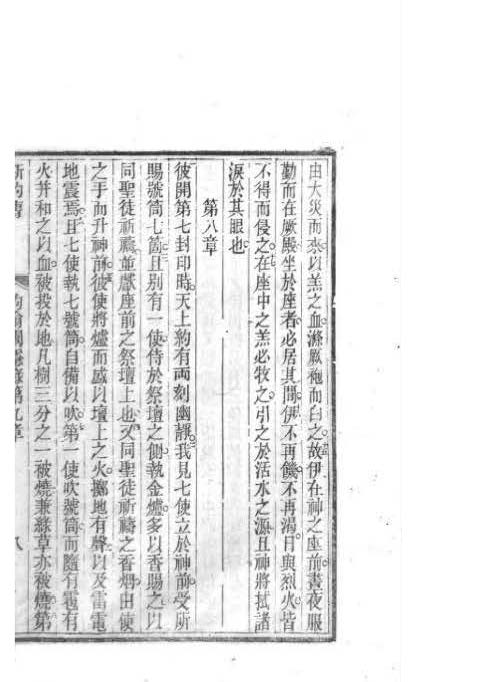 由大災而來以羔之血滌厥袍而白之故伊在神之座前晝夜服
勤而在厥殿坐於座者必居其間伊不再饑不再渴日與烈火皆
不得而侵之在座中之羔必牧之引之於活水之源且神將拭諸
淚於其眼也
第八章
彼開第七封印時天上約有兩刻幽靜我見七使立於神前受所
賜號筒七箇且別有一使侍於祭壇之側執金爐多以香賜之以
同聖徒祈禱並獻座前之祭壇上也又同聖徒祈禱之香烟由使
之手而升神前彼使將爐而盛以壇上之火擲地有聲以及雷電
地震焉且七使執七號筒自備以吹第一使吹號筒而隨有雹有
火幷和之以血被投於地凡樹三分之一被燒兼綠草亦被燒第